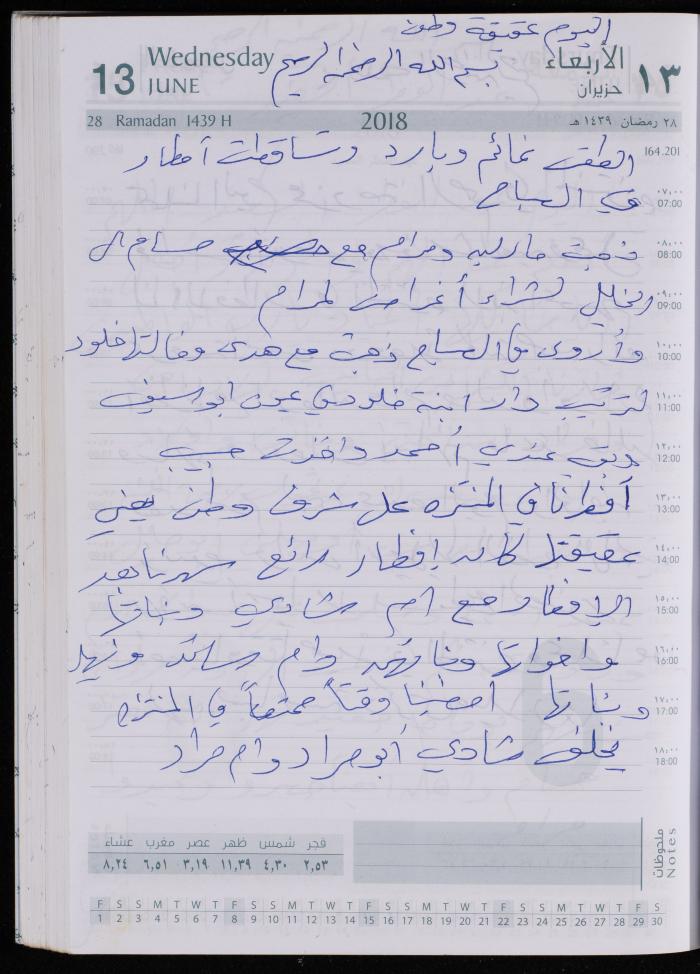 اليوم عقيقة وطن
Wednesday الأربعاء
بسم الله الرحمن الرحيم
13 JUNE حزيران ١٣
28 Ramadan 1439 H 2018 ٢٨ رمضان ١٤٣٩ هـ
164.201
الطقس غائم وبارد وتساقطت أمطار
٠٧,٠٠
في الصباح
07:00
٠٨,٠٠
ذهبت مارلين ومرام مع حسام الى
08:00
٠٩,٠٠
الخليل لشراء أغراض لمرام
09:00
١٠,٠٠
وأروى في الصباح ذهبت مع هدى وخالتها خلود
10:00
١١,٠٠
لترتيب دار ابنة خلود في عين ابو سيف
11:00
١٢,٠٠
وبقي عندي أحمد واخذت حبيب
12:00
١٣,٠٠
أفطرنا في المنتزه على شرف وطن يعني
13:00
١٤,٠٠
عقيقتها كان إفطار رائع سهرنا بعد
14:00
١٥,٠٠
الإفطار مع ام شادي وبناتها
15:00
١٦,٠٠
واخواتها وبناتهن وام رسائد ونهيل
16:00
١٧,٠٠
وبناتها امضينا وقتاً ممتعاً في المنتزه
17:00
١٨,٠٠
يخلف شادي أبو مراد وام مراد
18:00
ملحوظات
Notes
فجر شمس ظهر عصر مغرب عشاء
٢,٥٣ ٤,٣٠ ١١,٣٩ ٣,١٩ ٦,٥١ ٨,٢٤
F S S M T W T F S S M T W T F S S M T W T F S S M T W T F S
1 2 3 4 5 6 7 8 9 10 11 12 13 14 15 16 17 18 19 20 21 22 23 24 25 26 27 28 29 30